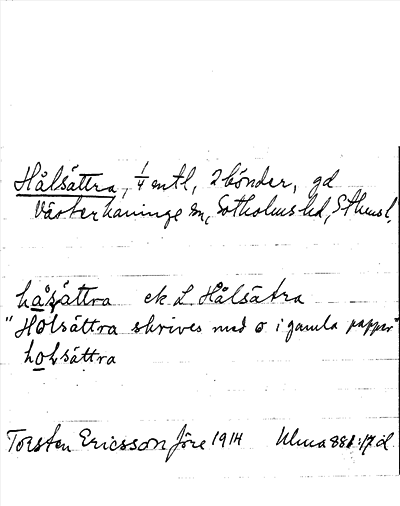 Hålsättra, 1/4 mtl, 2 bönder, gd
Västerhaninge sn, Sotholms hd, Sthms l.
hålsättra ek L Hålsätra
"Holsättra skrives med o i gamla papper"
holsättra
Torsten Ericsson före 1914 Ulma 881:17 d